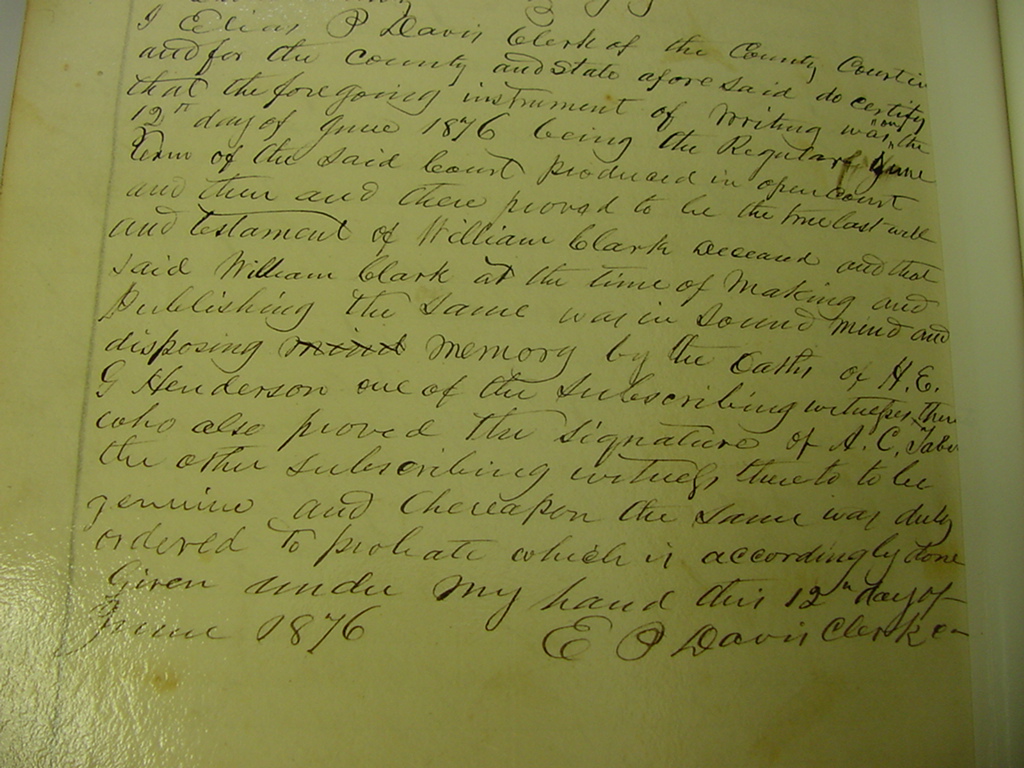 I Elias P Davis Clerk of the County Court in
and for the County and State afore said do certify
that the foregoing instrument of Writing was on the
12th day of June 1876 being the Regular June
term of the said Court produced in open court
and then and there proved to be the true last will
and testament of William Clark deceased and that
said William Clark at the time of Making and
Publishing the same was in Sound mind and
disposing mind memory by the Oaths of H. E.
G Henderson one of the Subscribing witnesses
who also proved the signature of A. C.
the other subscribing witness thereto to be
genuine and thereupon the same was duly
ordered to probate which is accordingly done
Given under my hand this 12th day of
June 1876
E P Davis Clerk